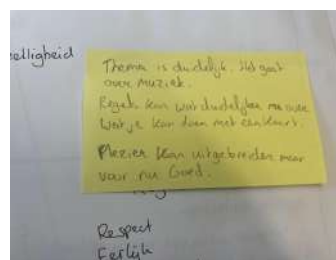 elligheid
Thema is duidelijk. Het gaat
over muziek.
Regels kan wat duidelijker over
wat je kan doen met een kaart.
Plezier kan uitgebreiden maar
voor nu Goed.
Respect
Eerlijk